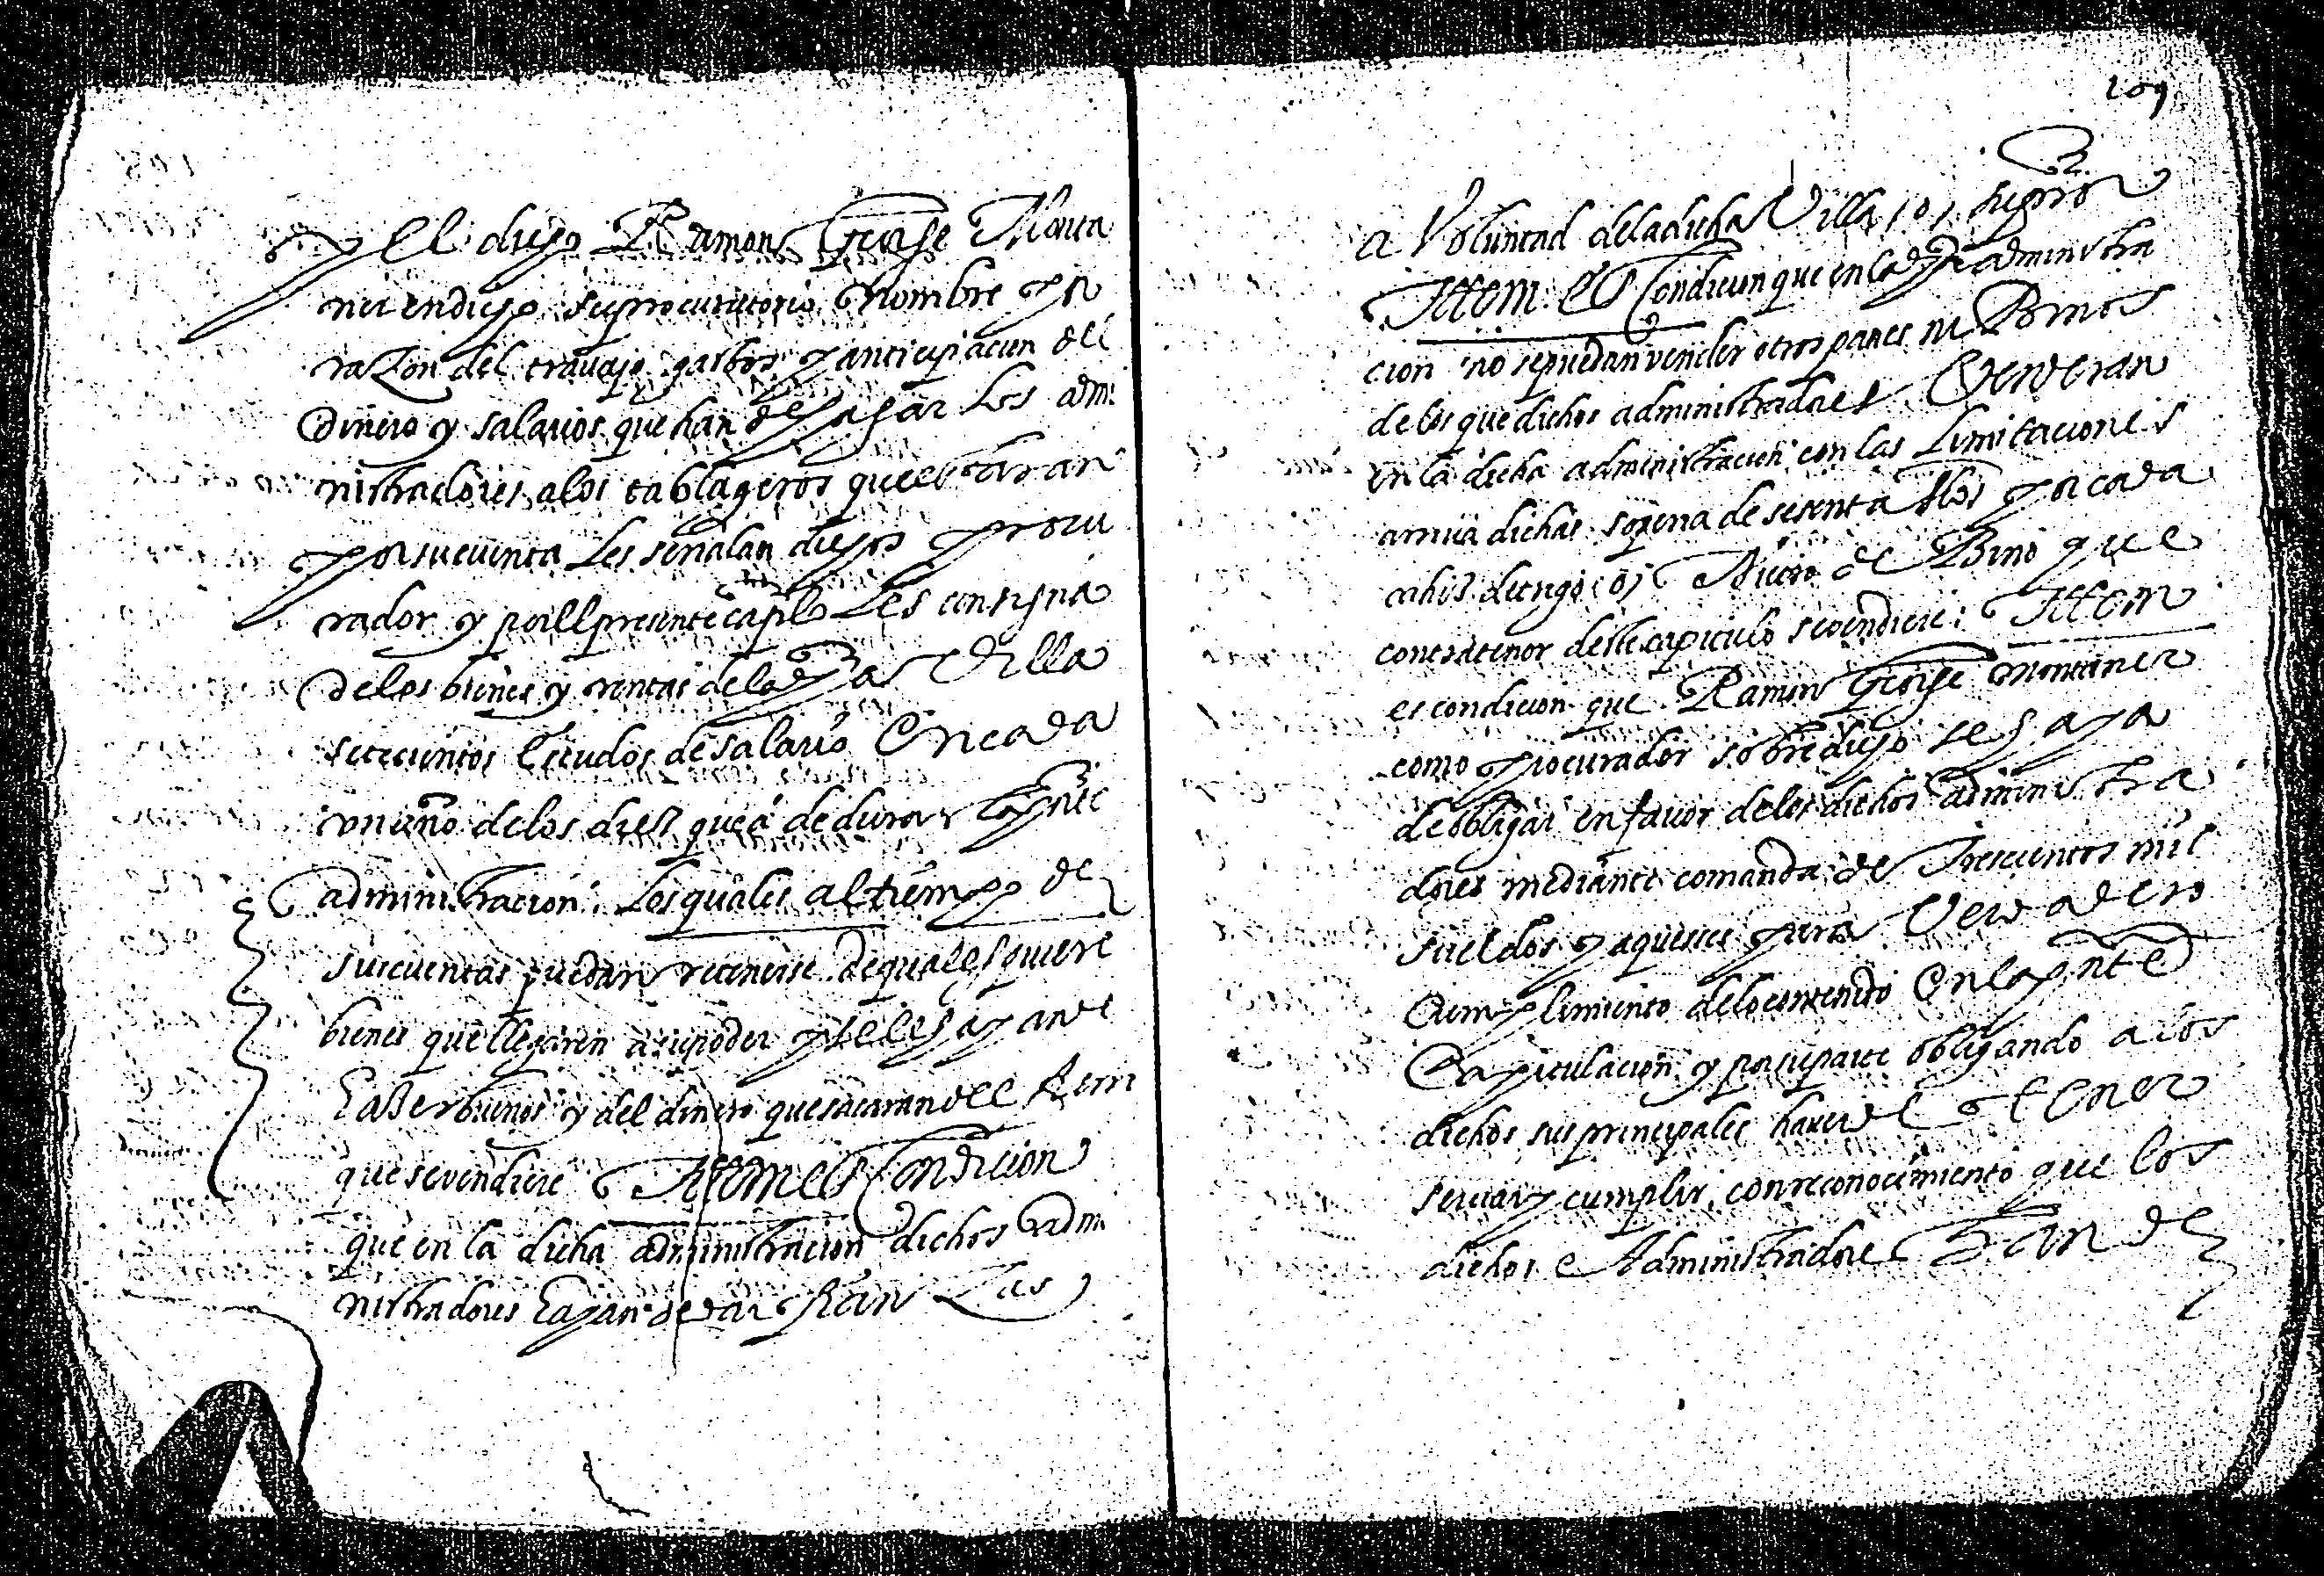 y el dicho Ramon George Monta
ner en dicho su procuratorio nombre por
razon del travajo gastos y anticipacion del
dinero y salarios que han de pagar los admi
nistradores a los tablageros que estaran
por su cuenta les señalan dichos procu
rador y por el presente capl les consigna
de los bienes y rentas de la dha Villa
setecientos escudos de salario en cada
un año de los diez que a de durar la pnte
administracion. Los quales al tiempo de
sus cuentas puedan retenerse de qualesquiere
bienes que llegaren a su poder y se les hayan de
haver buenos y del dinero que sacaran del
que se vendiere Ittem es Condicion
que en la dicha administracion dichos admi
nistradores hayan de dar las
209
a Voluntad de la dicha Villa o su pror
Ittem es Condicion que en la dha administra
cion no se puedan vender otros panes ni Binos
de los que dichos administradores Venderan
en la dicha administracion con las Limitaciones
arriva dichas so pena de sesenta por cada
cahiz de trigo o Nietro de Bino que
contra tenor deste capitulo se vendiere: Ittem
es condicion que Ramon George montaner
como procurador sobredicho se haya
de obligar en favor de los dichos administra
dores mediante comanda de Trescientos mil
sueldos y aquesto para Verdadero
Cumplimiento de lo contenido en la pnte
Capitulacion y por su parte obligando a los
dichos sus principales haver de tener
servar y cumplir, con reconocimiento que los
dichos Administradores Han de